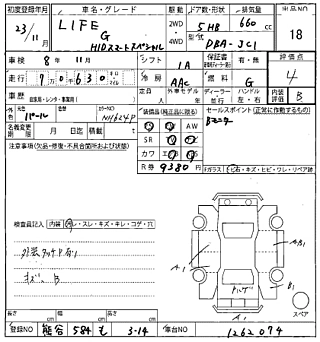 初度登録年月
車名・グレード
駆動
ドア数・形状
排気量
出品NO
23/11
LIFE
G
HIDスマートスペシャル
2WD
4WD
5HB
660
cc
型式
DBA-JC1
18
車検
8年11月
走行
70630
自家用・レンタ・事業用
シフト
1A
冷房
AAC
保証書
有・無
燃料
G
評価点
4
外色
パール
カラーNO
NH624P
定員
外車モデル
年
ディーラー
並行
ハンドル
左・右
内装評価
B
名義変更期限
月
日迄
積載
t
装備品(純正品に限る)
セールスポイント(正常に作動するもの)
SR
AW
PS
PW
カワ
エアB
TV
ナビ
Bモニター
R券
9380
円
注意事項(欠品・修復・不具合箇所および状態)
Fガラス
ヒビ石・キズ・ヒビ・ワレ・リペア跡
検査員記入
内装
スレ・キズ・キレ・コゲ・穴
外装タッチ有り
キズ、B
A1
B1
A1
スペア
長
cm
幅
cm
高
cm
登録NO
熊谷
584
も
3-14
車台NO
1262074